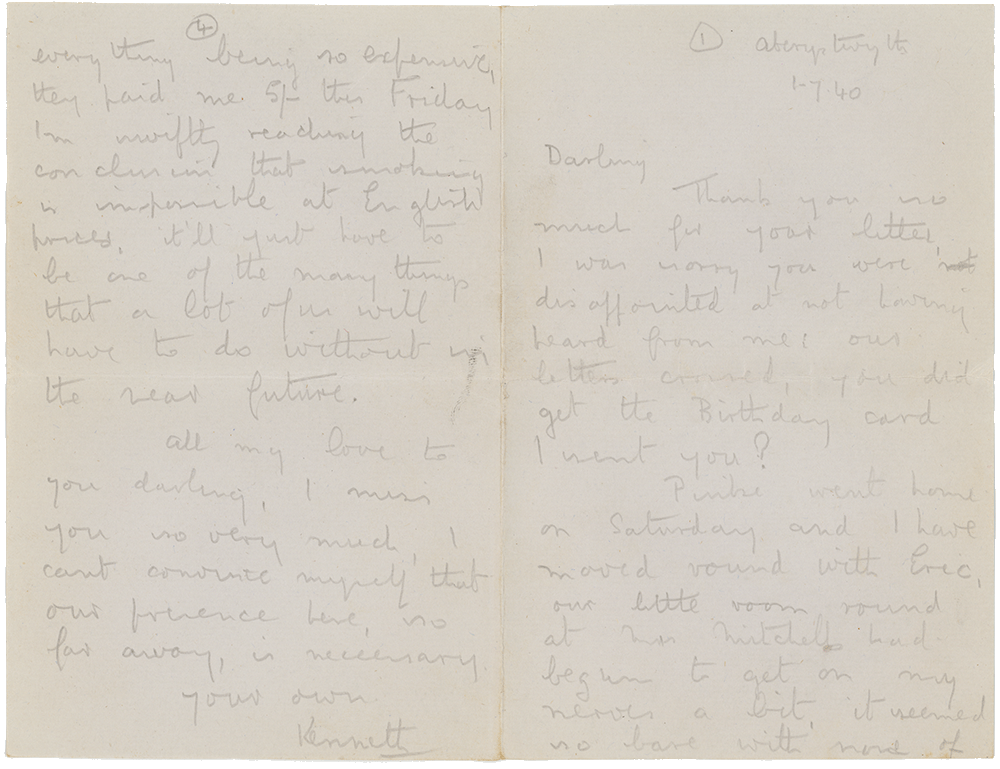 ①
Aberystwyth
1-7.40
Darling
Thank you so
much for your letter,
I was sorry you were
disappointed at not having
heard from me: our
letters crossed, you did
get the Birthday card
I sent you?
went home
on Saturday and I have
moved round with Eric,
our little room round
at Mrs Mitchells had
begun to get on my
nerves a bit, it seemed
so bare with none of
④
everything being so expensive,
they paid me 5/- this Friday
I'm swiftly reaching the
conclusion that smoking
is impossible at English
prices, it'll just have to
be one of the many things
that a lot of us will
have to do without in
the near future.
All my love to
you darling, I miss
you so very much, I
cant convince myself that
our presence here, so
far away, is neccessary.
your own
Kenneth